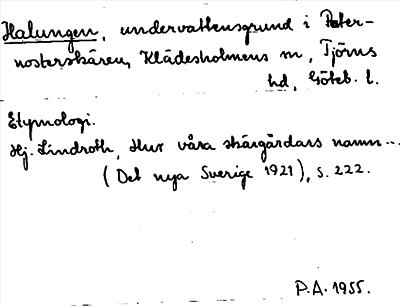 Halungen, undervattensgrund i Pater-
nosterskären, Klädesholmens m, Tjörns
hd, Göteb. l.
Etymologi.
Hj. Lindroth, Hur våra skärgårdars namn...
(Det nya Sverige 1921), s. 222.
P.A. 1955.